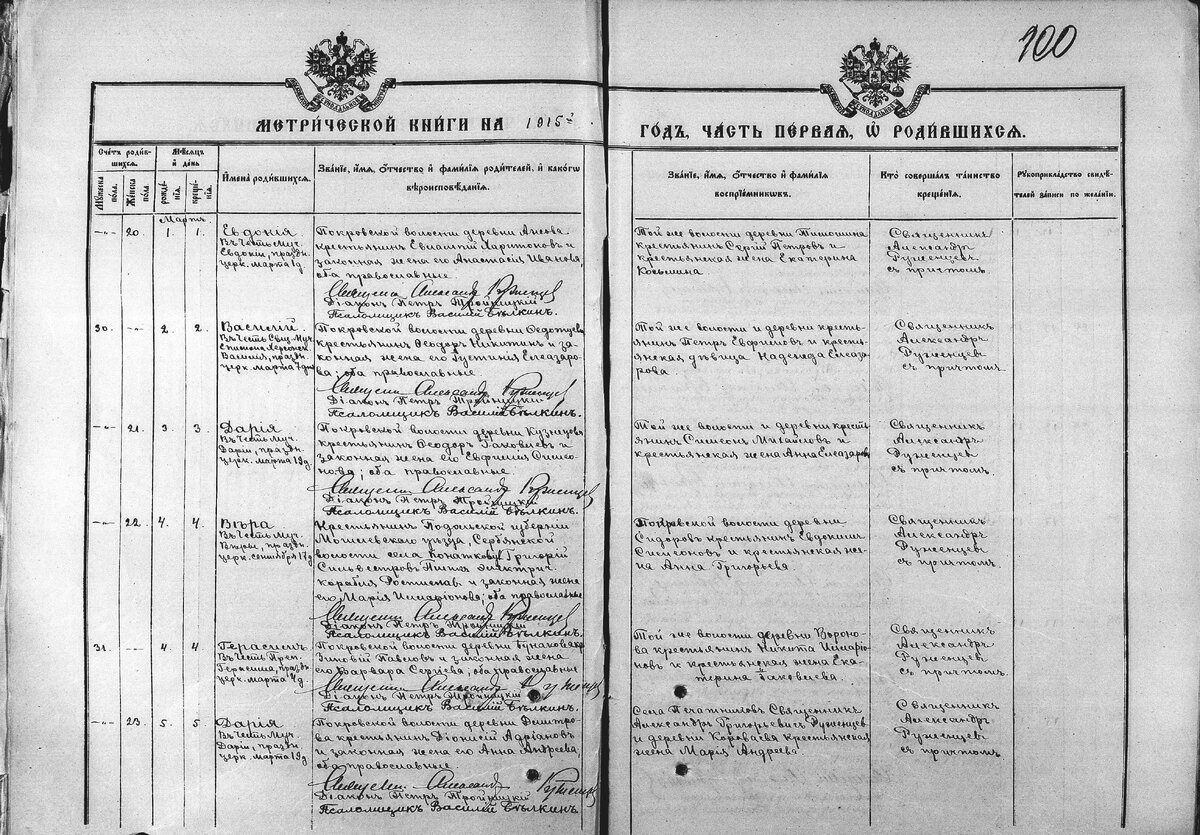 100
МЕТРИ́ЧЕСКОЙ КНИ́ГИ НА 1915й
ГО́ДЪ, ЧА́СТЬ ПЕ́РВАЯ, Ѡ҆ РОДИ́ВШИХСЯ.
Сче́тъ роди́вшихся.
Мꙋ́жеска по́ла.
Же́нска по́ла.
Мѣ́сяцъ и҆ де́нь
рожде́нія.
креще́нія.
И҆мена̀ роди́вшихся.
Зва́ніе, и҆́мя, ѻ҆́тчество и҆ фами́лія роди́телей, и҆ како́гѡ
вѣроисповѣ́данія.
Зва́ніе, и҆́мя, ѻ҆́тчество и҆ фами́лія
воспріе́мниковъ.
Кто̀ соверша́лъ та́инство
креще́нія.
Рꙋкоприкла́дство свидѣ́телей за́писи по жела́нію.
Мартъ
-"- 20. 1. 1.
Евдокія
Въ честь муч.
Евдокіи, праздн.
церк. марта 1 д.
Покровской волости деревни
крестьянинъ Евлампій Харитоновъ и
законная жена его Анастасія Иванова,
оба православные.
Священникъ Александръ Руженцев
Діаконъ Петръ Тройницкій
Псаломщикъ Василій Бѣлкинъ.
Той же волости деревни Тимошина
крестьянинъ Сергій Петровъ и
крестьянская жена Екатерина
Козьмина.
Священникъ
Александръ
Руженцевъ
съ причтомъ
30. -"- 2. 2.
Василій.
Въ честь Свщ. Муч.
Епископа Херсон.
Василія, праздн.
церк. марта 7 дня
Покровской волости деревни Федотцева
крестьянинъ Ѳеодоръ Никитинъ и за-
конная жена его Евгенія Елеазаро-
ва; оба православные.
Священникъ Александръ Руженцев
Діаконъ Петръ Тройницкій
Псаломщикъ Василій Бѣлкинъ.
Той же волости и деревни кресть-
янинъ Петръ Евфимовъ и кресть-
янская дѣвица Надежда Елеаза-
рова
Священникъ
Александръ
Руженцевъ
съ причтомъ
-"- 21. 3. 3.
Дарія
Въ честь муч.
Даріи, праздн.
церк. марта 19 д
Покровской волости деревни Кузнецова
крестьянинъ Ѳеодоръ Іаковлевъ и
законная жена его Евфимія Симео-
нова; оба православные.
Священникъ Александръ Руженцев
Діаконъ Петръ Тройницкій
Псаломщикъ Василій Бѣлкинъ.
Той же волости и деревни кресть-
янинъ Симеонъ Михайловъ и
крестьянская жена Анна Елеазарова
Священникъ
Александръ
Руженцевъ
съ причтомъ
-"- 22. 4. 4.
Вѣра
Въ честь муч.
Вѣры, праздн.
церк. сентября 17 д
Крестьянинъ Подольской губерніи
Могилевскаго уѣзда, Серебрянской
волости села Григорій
Сильвестровъ
корабля Ростислав. и законная жена
его Марія Иларіонова; оба православные
Священникъ Александръ Руженцев
Діаконъ Петръ Тройницкій
Псаломщикъ Василій Бѣлкинъ.
Покровской волости деревни
Сидорово крестьянинъ Евдокимъ
Симеоновъ и крестьянская же-
на Анна Григорьева
Священникъ
Александръ
Руженцевъ
съ причтомъ
31. -"- 4. 4.
Герасимъ.
Въ честь Преп.
Герасима, праздн
церк. марта 4 д.
Покровской волости деревни
Павловъ и законная жена
его Варвара Сергіева; оба православные
Священникъ Александръ Руженцев
Діаконъ Петръ Тройницкій
Псаломщикъ Василій Бѣлкинъ.
Той же волости деревни Вороно-
ва крестьянинъ Никита Иларіо-
новъ и крестьянская жена Ека-
терина Іаковлева
Священникъ
Александръ
Руженцевъ
съ причтомъ
-"- 23. 5. 5.
Дарія
Въ честь муч.
Даріи, праздн
церк. марта 19 д
Покровской волости деревни Дмитро-
ва крестьянинъ Діонисій Адріановъ
и законная жена его Анна Андреева,
оба православные.
Священникъ Александръ Руженцев
Діаконъ Петръ Тройницкій
Псаломщикъ Василій Бѣлкинъ
Села Печатниковъ Священникъ
Александръ Григорьевичъ Руженцевъ
и деревни Короваева крестьянская
жена Марія Андреева
Священникъ
Александръ
Руженцевъ
съ причтомъ